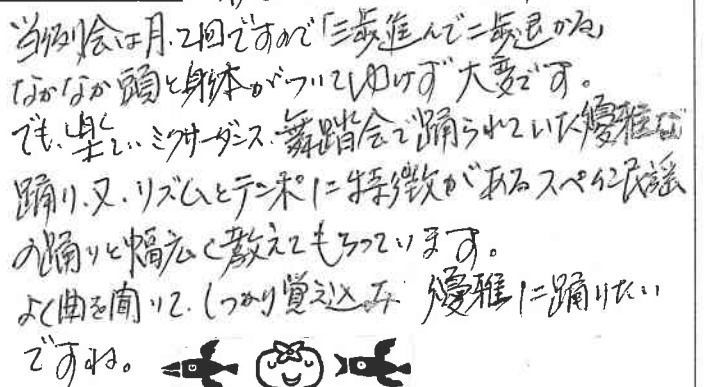 当例会は月、2回ですので「三歩進んで二歩退がる」
なかなか頭と身体がついてゆけず大変です。
でも、楽しいミクサーダンス、舞踏会で踊られていた優雅な
踊り、又、リズムとテンポに特徴があるスペイン民謡
の踊りと幅広く教えてもらっています。
よく曲を聞いて、しっかり覚え込み 優雅に踊りたい
ですね。